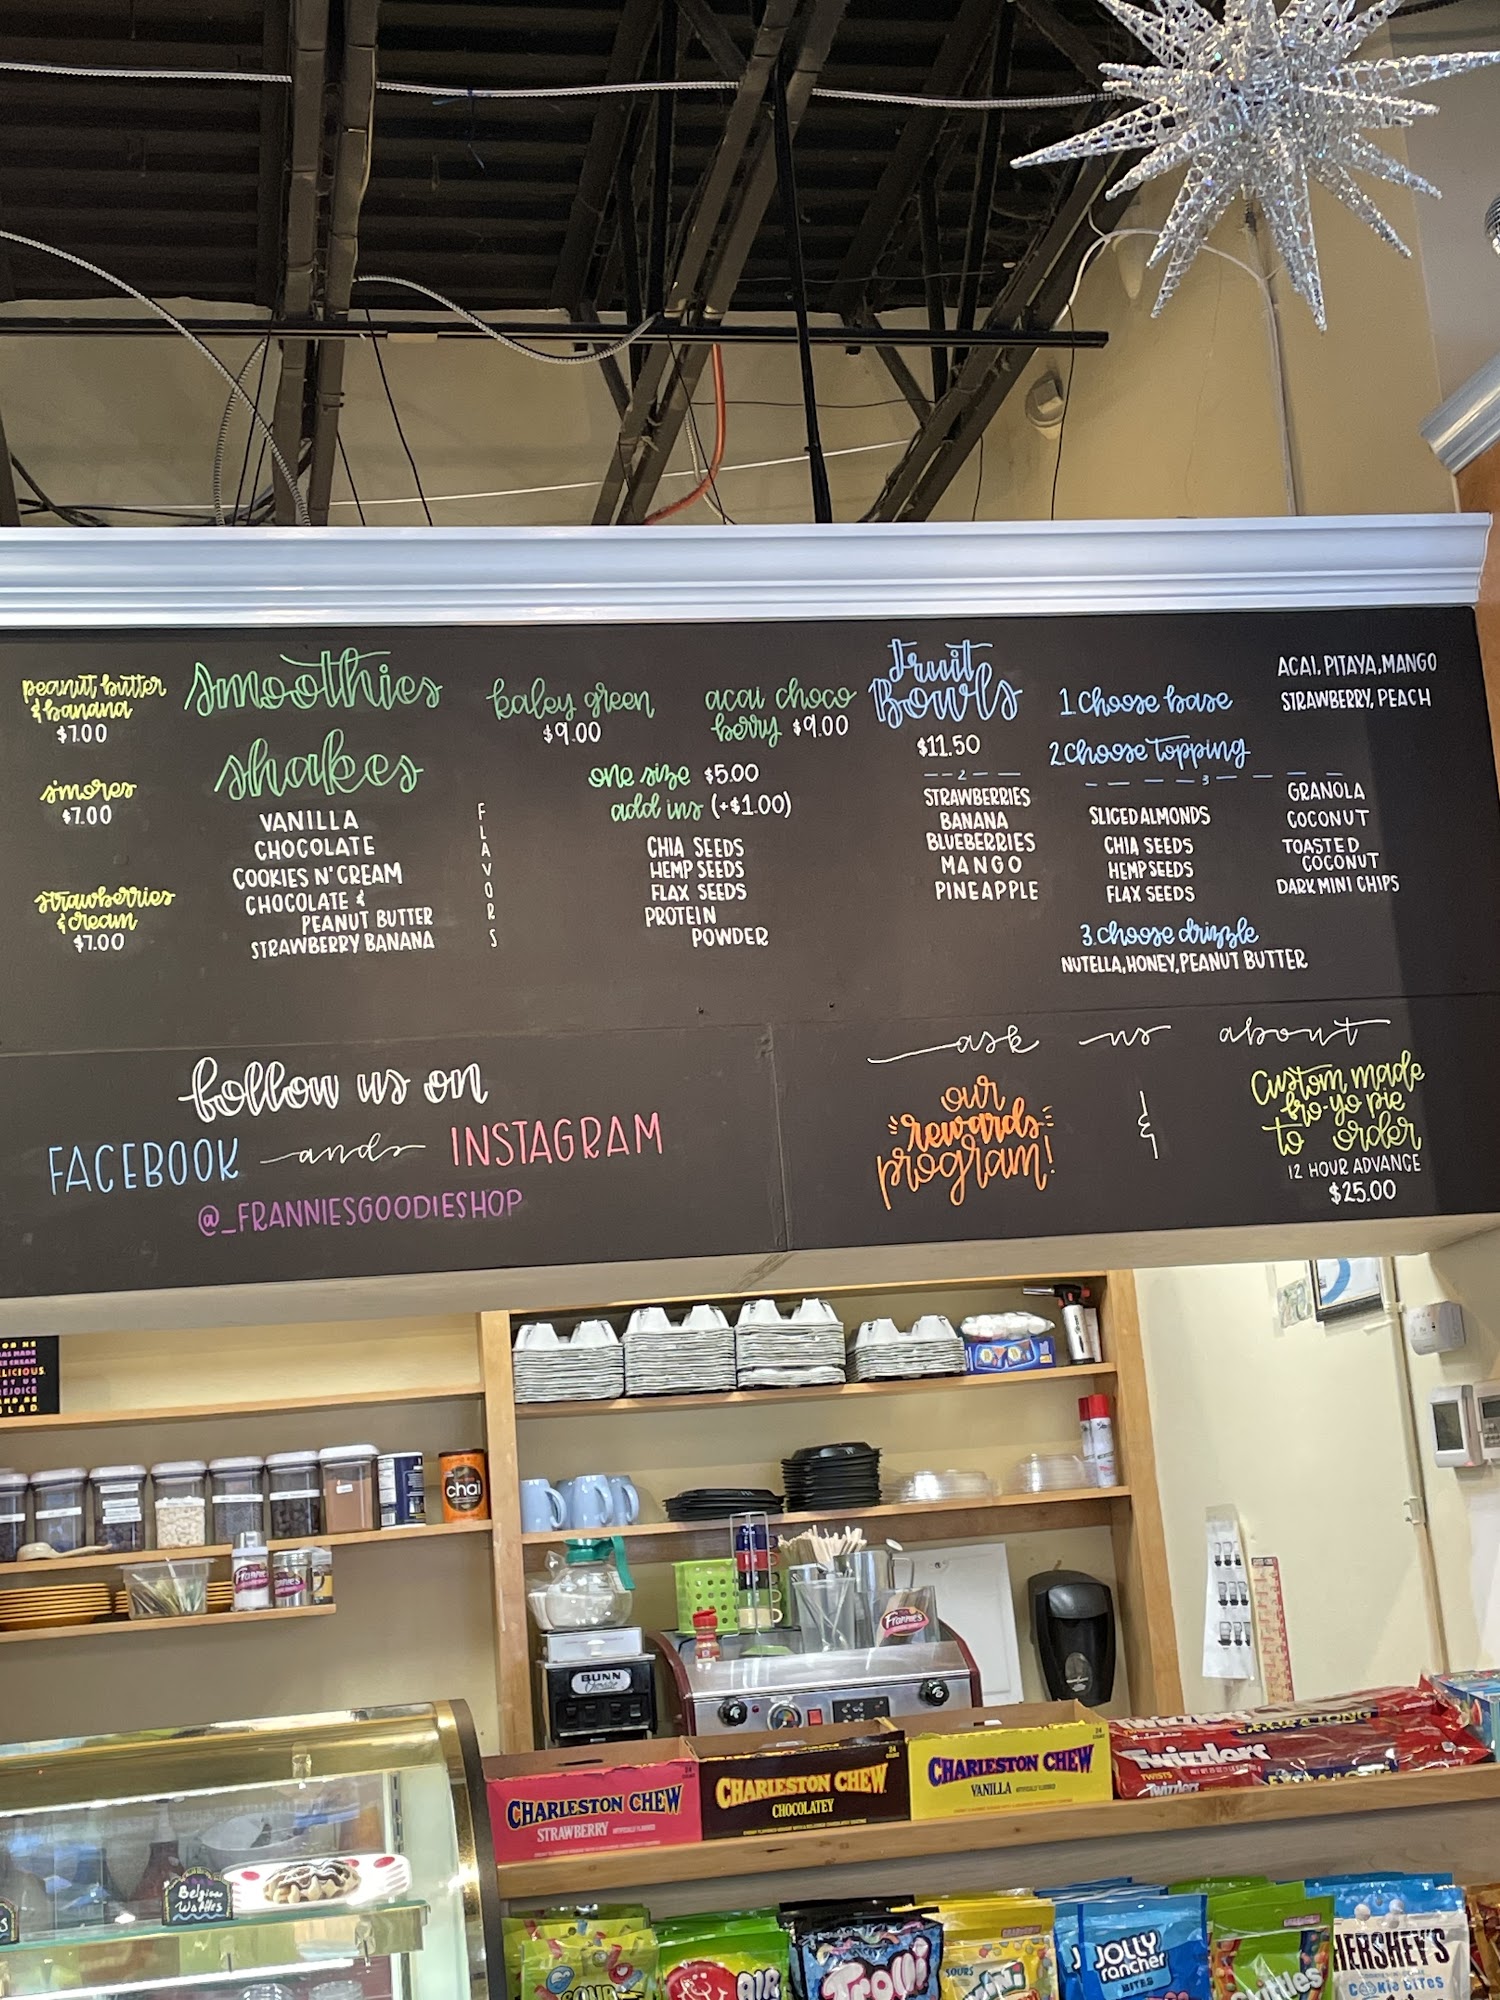 peanut butter
& banana
$7.00
s'mores
$7.00
strawberries
& cream
$7.00
smoothies
shakes
VANILLA
CHOCOLATE
COOKIES N' CREAM
CHOCOLATE &
PEANUT BUTTER
STRAWBERRY BANANA
FLAVORS
kaley green
$9.00
acai choco
berry $9.00
one size $5.00
add ins (+$1.00)
CHIA SEEDS
HEMP SEEDS
FLAX SEEDS
PROTEIN
POWDER
Fruit
Bowls
$11.50
2
STRAWBERRIES
BANANA
BLUEBERRIES
MANGO
PINEAPPLE
1. Choose base
ACAI, PITAYA, MANGO
STRAWBERRY, PEACH
2. choose topping
3
SLICED ALMONDS
CHIA SEEDS
HEMP SEEDS
FLAX SEEDS
GRANOLA
COCONUT
TOASTED
COCONUT
DARK MINI CHIPS
3. choose drizzle
NUTELLA, HONEY, PEANUT BUTTER
follow us on
FACEBOOK and INSTAGRAM
@_FRANNIESGOODIESHOP
ask us about
our
rewards
program!
&
Custom made
fro-yo pie
to order
12 HOUR ADVANCE
$25.00
chai
BUNN
Frannie's
CHARLESTON CHEW
STRAWBERRY
CHARLESTON CHEW
CHOCOLATEY
CHARLESTON CHEW
VANILLA
Twizzlers
TWISTS
Twizzlers
Belgian
Waffles
AIR
Trolli
SOURS
JOLLY
rancher
BITES
Skittles
HERSHEY'S
Cookie Bites